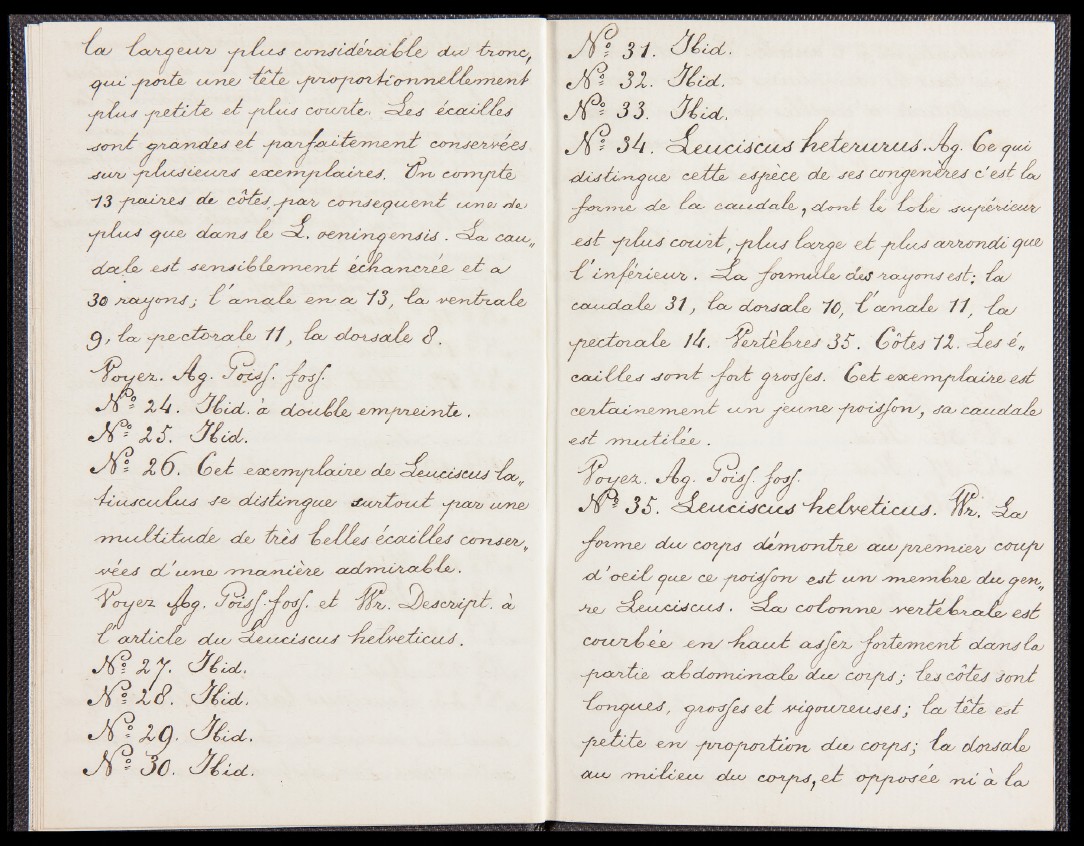 la largeur plus considérable du tronc,
qui porte une tête proportionnellement
plus petite et plus courte. Les écailles
sont grandes et parfaitement conservées
sur plusieurs exemplaires. On compte
13 paires de côtes, par consequent une de
plus que dans le L. oeningensis. La cau„
dale est sensiblement échancrée et a
30 rayons; l'anale en a 13, la ventrale
9, la pectorale 11, la dorsale 8.
Voyez. Ag. Poiss. foss.
Nº 24. Ibid. à double empreinte.
Nº 25. Ibid.
Nº 26. Cet exemplaire de Leuciscus la„
tiusculus se distingue surtout par une
multitude de très belles écailles conser„
vées d'une manière admirable.
Voyez Ag. Poiss. foss. et Wr. Descript. à
l'article du Leuciscus helveticus.
Nº 27. Ibid.
Nº 28. Ibid.
Nº 29. Ibid.
Nº 30. Ibid.
Nº 31. Ibid.
Nº 32. Ibid.
Nº 33. Ibid.
Nº 34. Leuciscus heterurus. Ag. Ce qui
distingue cette espèce de ses congenères c'est la
forme de la caudale, dont le lobe supérieur
est plus court, plus large et plus arrondi que
l'inférieur. La formule des rayons est: la
caudale 31, la dorsale 10, l'anale 11, la
pectorale 14. Vertèbres 35. Côtes 12. Les é„
cailles sont fort grosses. Cet exemplaire est
certainement un jeune poisson, sa caudale
est mutilée.
Voyez. Ag. Poiss. foss.
Nº 35. Leuciscus helveticus. Wr. La
forme du corps démontre au premier coup
d'oeil que ce poisson est un membre du gen„
re Leuciscus. La colonne vertébrale est
courbée en haut assez fortement dans la
partie abdominale du corps; les côtes sont
longues, grosses et vigoureuses; la tête est
petite en proportion du corps; la dorsale
au milieu du corps, et opposée ni à la